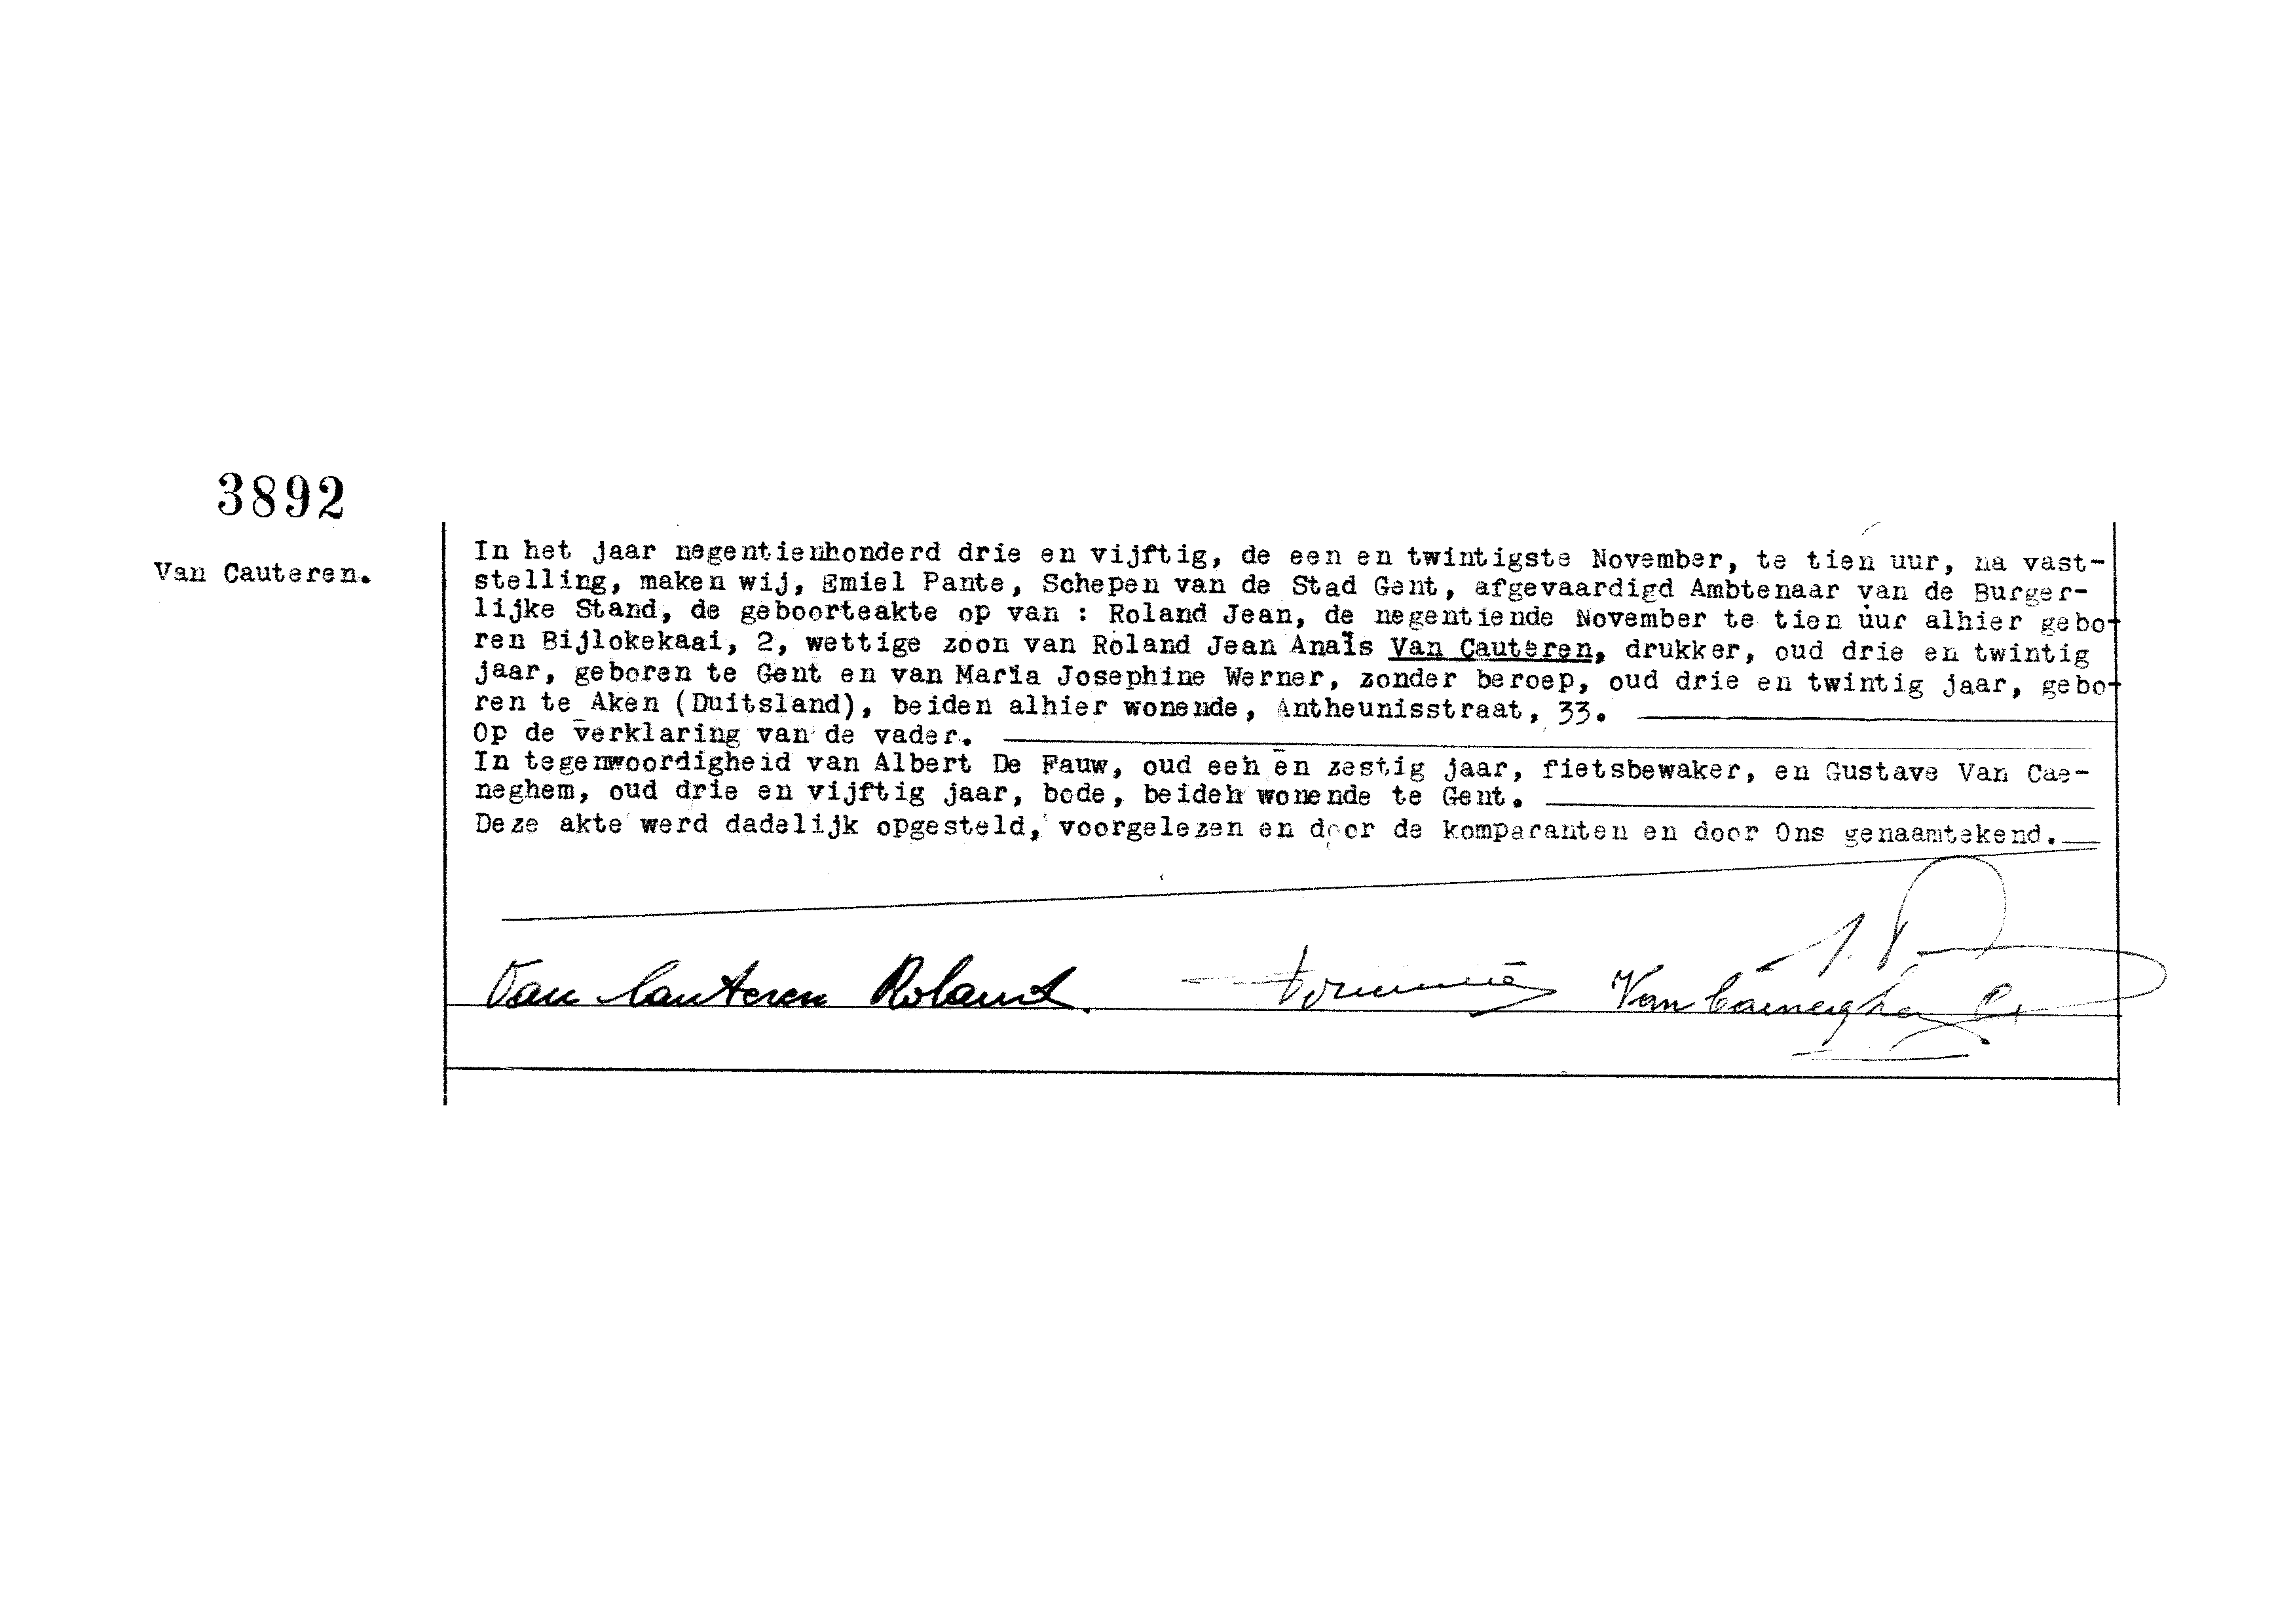 3892
Van Cauteren.
In het jaar negentienhonderd drie en vijftig, de een en twintigste November, te tien uur, na vast-
stelling, maken wij, Emiel Pante, Schepen van de Stad Gent, afgevaardigd Ambtenaar van de Burger-
lijke Stand, de geboorteakte op van : Roland Jean, de negentiende November te tien uur alhier gebo-
ren Bijlokekaai, 2, wettige zoon van Roland Jean Anaïs Van Cauteren, drukker, oud drie en twintig
jaar, geboren te Gent en van Maria Josephine Werner, zonder beroep, oud drie en twintig jaar, gebo-
ren te Aken (Duitsland), beiden alhier wonende, Antheunisstraat, 33.
Op de verklaring van de vader.
In tegenwoordigheid van Albert De Fauw, oud een en zestig jaar, fietsbewaker, en Gustave Van Cae-
neghem, oud drie en vijftig jaar, bode, beiden wonende te Gent.
Deze akte werd dadelijk opgesteld, voorgelezen en door de komparanten en door Ons genaamtekend.
Van Cauteren Roland